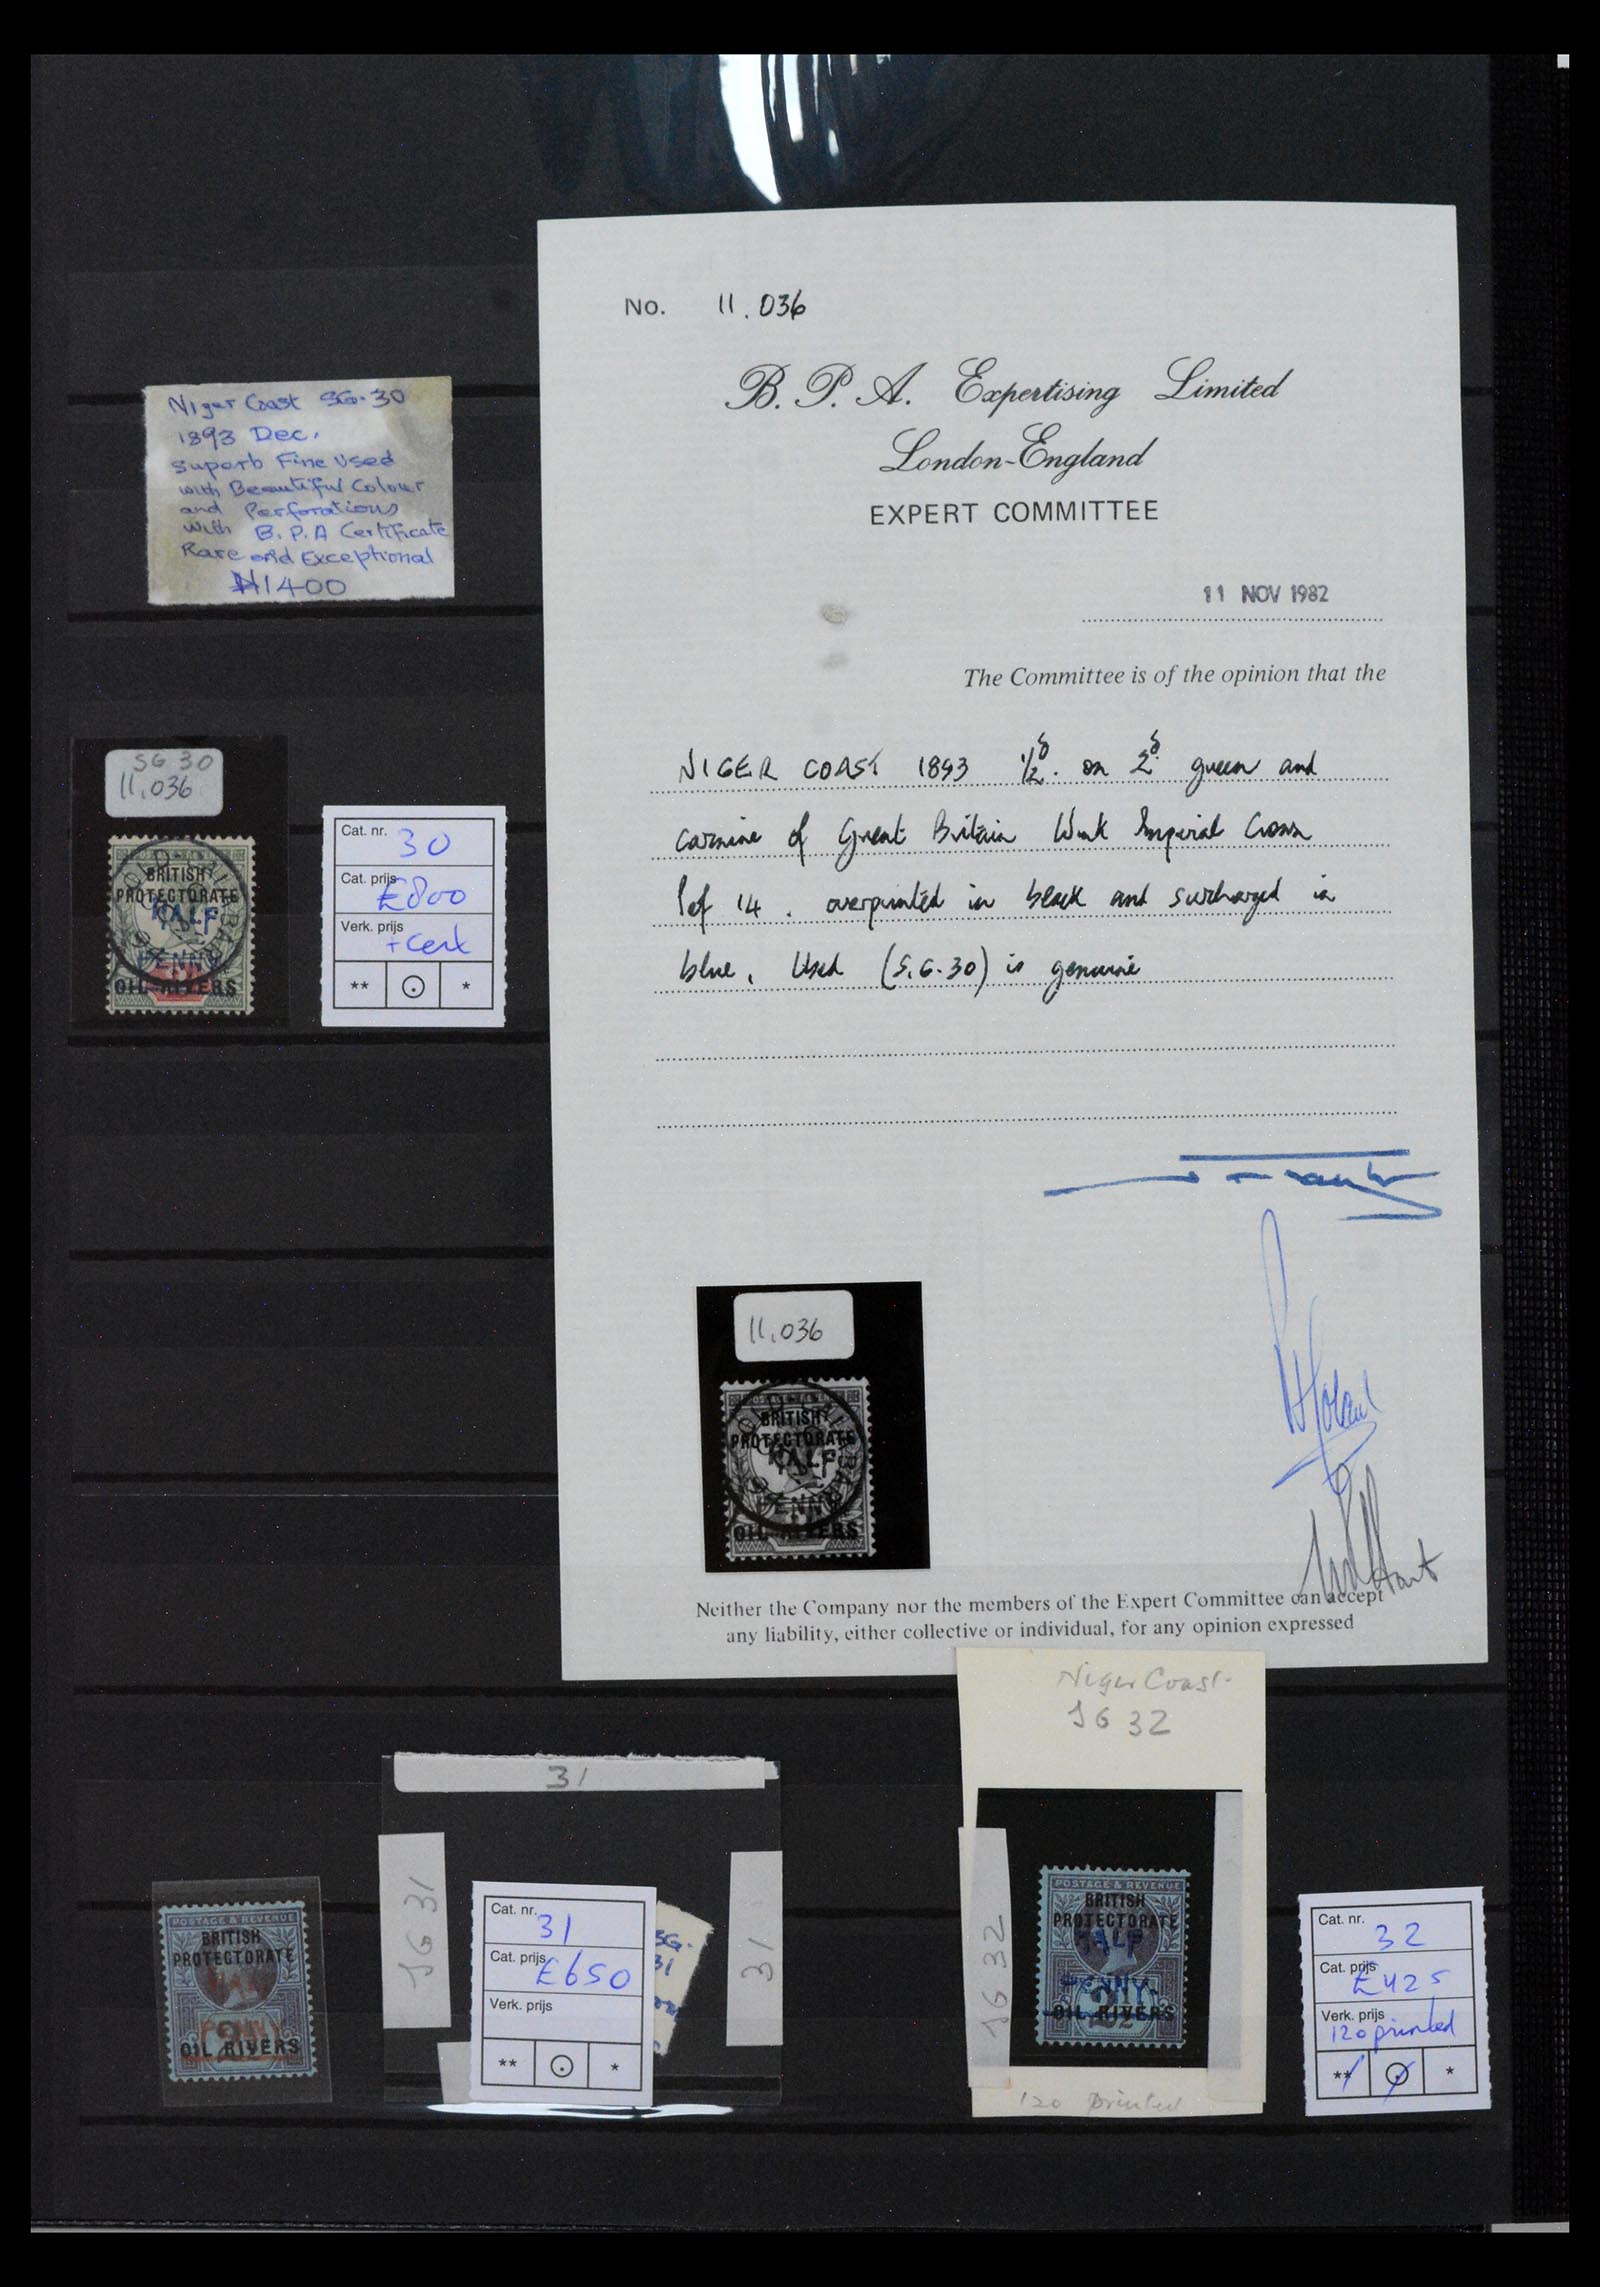 No. 11.036
B. P. A. Expertising Limited
London-England
EXPERT COMMITTEE
11 NOV 1982
The Committee is of the opinion that the
NIGER COAST 1893 ½d. on 2d. green and
carmine of Great Britain Wmk Imperial Crown
Perf 14. overprinted in black and surcharged in
blue. Used (S.G.30) is genuine
11.036
BRITISH
PROTECTORATE
HALF
PENNY
OIL RIVERS
Neither the Company nor the members of the Expert Committee can accept
any liability, either collective or individual, for any opinion expressed
Niger Coast SG.30
1893 Dec.
Superb Fine Used
with Beautiful Colour
and Perforations
with B.P.A Certificate
Rare and Exceptional
₦1400
SG 30
11.036
BRITISH
PROTECTORATE
HALF
PENNY
OIL RIVERS
Cat. nr. 30
Cat. prijs £800
Verk. prijs + cert
** ⊙ *
31
SG 31
31
POSTAGE & REVENUE
BRITISH
PROTECTORATE
OIL RIVERS
Cat. nr. 31
Cat. prijs £650
Verk. prijs
** ⊙ *
SG.
31
Niger Coast
SG 32
SG 32
POSTAGE & REVENUE
BRITISH
PROTECTORATE
HALF
PENNY.
OIL RIVERS
120 printed
Cat. nr. 32
Cat. prijs £425
Verk. prijs 120 printed
** ⊙ *